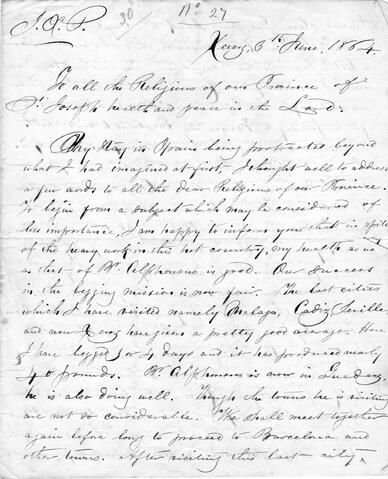 J.X.P. 30 No 27
Xerez 6th June. 1864.
To all the Religious of our Province of
St Joseph health and peace in the Lord.
My stay in Spain being protracted beyond
what I had imagined at first, I thought well to address
a few words to all the dear Religious of our Province.
To begin from a subject which may be considered of
less importance, I am happy to inform you that in spite
of the heavy work in this hot country, my health as well
as that of Fr. Alphonsus is good. Our success
in the begging mission is now fair. The last cities
which I have visited namely Malaga, Cadiz, Seville
and now Xerez have given a pretty good average. Here
I have begged 3 or 4 days and it has produced nearly
40 pounds. Fr. Alphonsus is now in
he is also doing well. Though the towns he is visiting
are not so considerable. We shall meet together
again before long to proceed to Barcelona and
other towns. After visiting this last city